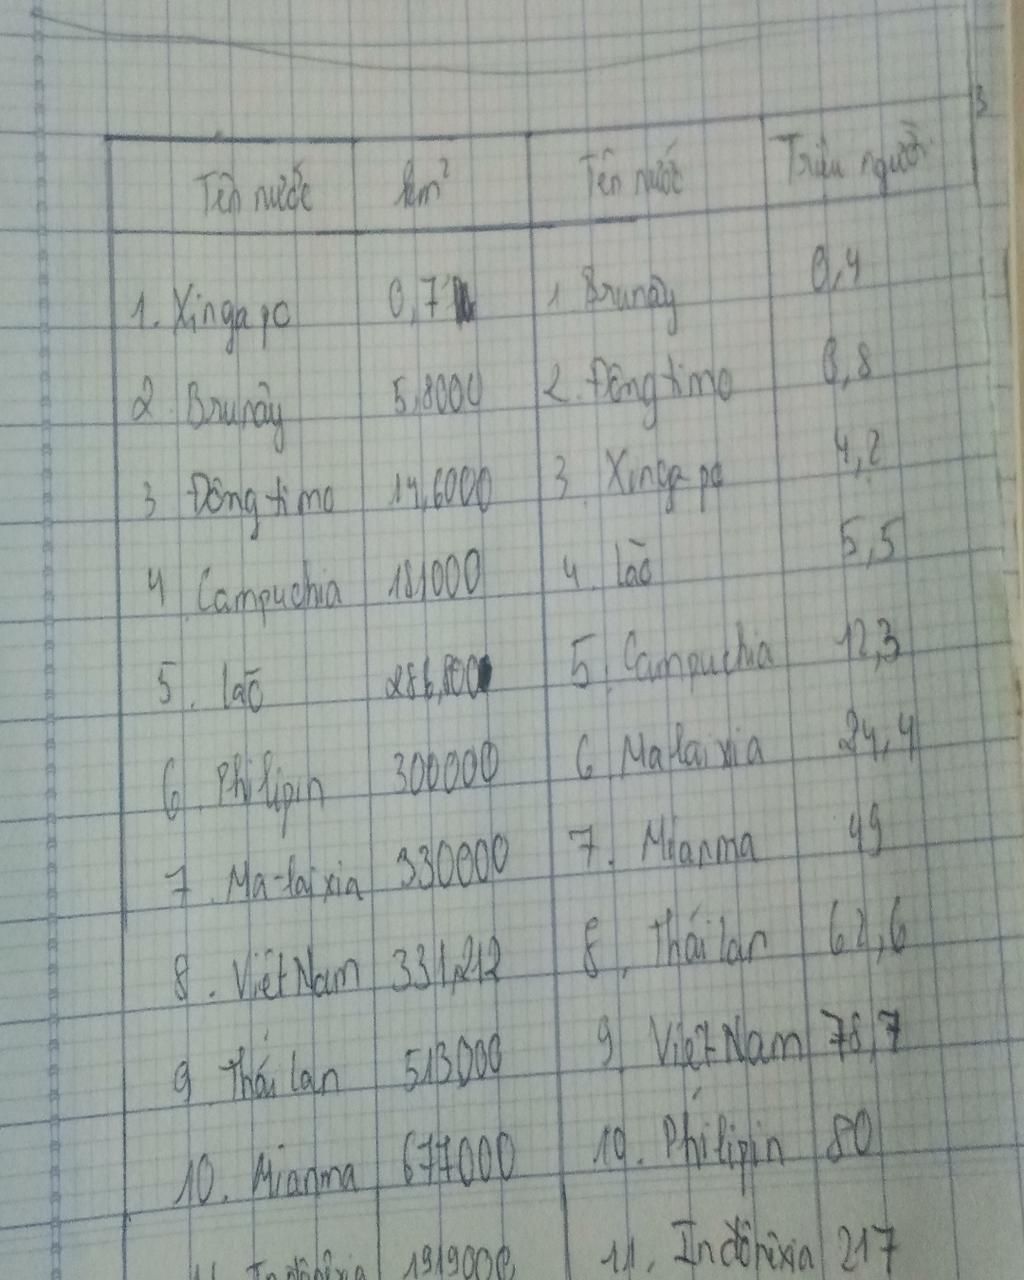 Tên nước km² Tên nước Triệu người
1. Xingapo 0,7 1 Brunây 0,4
2 Brunây 5,8000 2. Đông timo 0,8
3 Đông timo 14,6000 3. Xingapo 4,2
4 Campuchia 181000 4. lào 5,5
5. lào 236,800 5. Campuchia 12,3
6. Philipin 300000 6 Malaixia 24,4
7. Ma-laixia 330000 7. Mianma 49
8. Việt Nam 331,212 8. Thái lan 62,6
9 Thái lan 513000 9 Việt Nam 78,7
10. Mianma 677000 10. Philipin 80
11. Inđônêxia 1919000 11. Inđônêxia 217